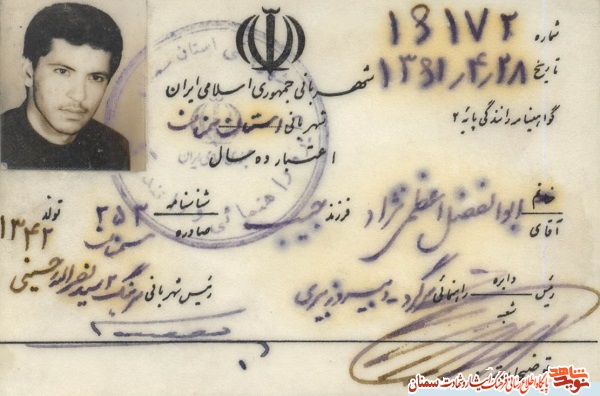 شماره ۱۶۱۷۲
تاریخ ۱۳۶۱/۴/۲۸
شهربانی جمهوری اسلامی ایران
گواهینامه رانندگی پایه ۲
شهربانی استان سمنان
اعتبار ده سال
خانم
آقای ابوالفضل اعظمی نژاد فرزند حبیب شناسنامه ۲۵۳ تولد ۱۳۴۲
صادره سمنان
رئیس دایره شعبه راهنمائی سرگرد - رئیس شهربانی سرهنگ ۲ سید نصراله حسینی
توضیحات
نوید شاهد
پایگاه اطلاع رسانی فرهنگ ایثار و شهادت سمنان